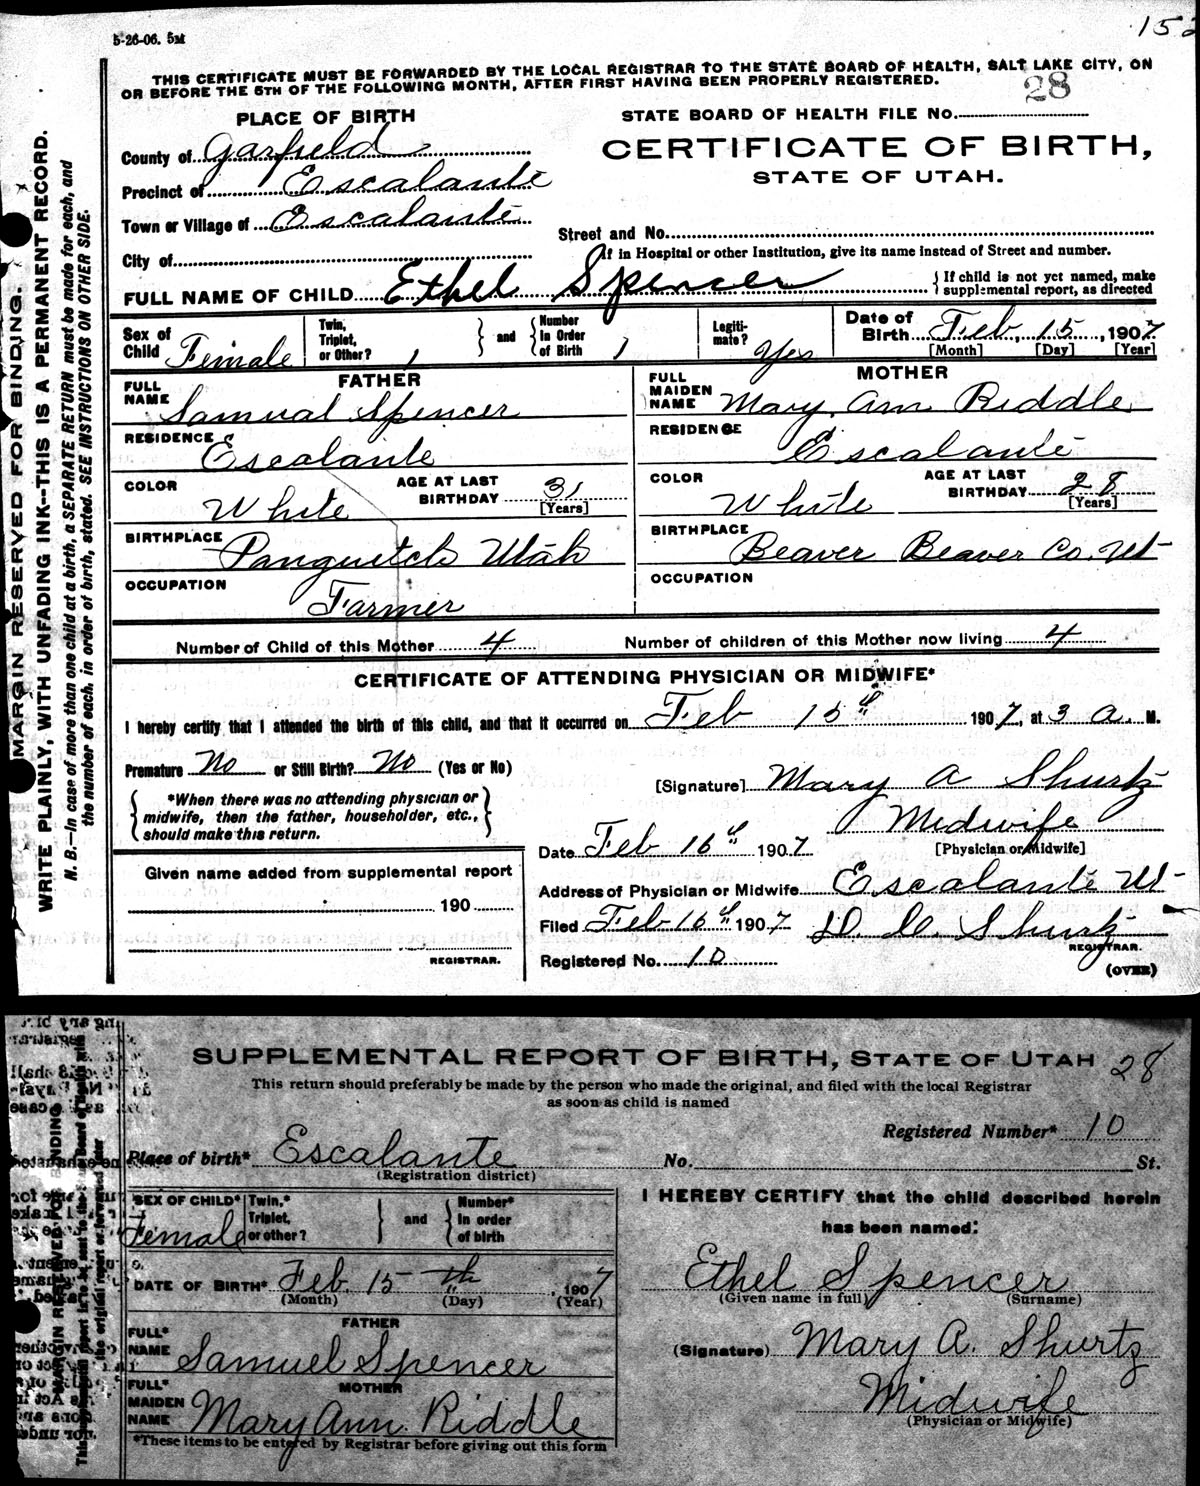 5-26-06. 5M
THIS CERTIFICATE MUST BE FORWARDED BY THE LOCAL REGISTRAR TO THE STATE BOARD OF HEALTH, SALT LAKE CITY, ON
OR BEFORE THE 5TH OF THE FOLLOWING MONTH, AFTER FIRST HAVING BEEN PROPERLY REGISTERED.
MARGIN RESERVED FOR BINDING.
WRITE PLAINLY, WITH UNFADING INK--THIS IS A PERMANENT RECORD.
N. B.—In case of more than one child at a birth, a SEPARATE RETURN must be made for each, and
the number of each, in order of birth, stated. SEE INSTRUCTIONS ON OTHER SIDE.
PLACE OF BIRTH
STATE BOARD OF HEALTH FILE No. 28
County of Garfield
CERTIFICATE OF BIRTH,
STATE OF UTAH.
Precinct of Escalante
Town or Village of Escalante
Street and No.
City of
If in Hospital or other Institution, give its name instead of Street and number.
FULL NAME OF CHILD Ethel Spencer
If child is not yet named, make
supplemental report, as directed
Sex of Child Female
Twin, Triplet, or Other? 1 and Number in Order of Birth 1
Legitimate? Yes
Date of Birth Feb. 15, 1907
[Month] [Day] [Year]
FATHER
FULL NAME Samual Spencer
MOTHER
FULL MAIDEN NAME Mary Ann Riddle
RESIDENCE Escalante
RESIDENCE Escalante
COLOR White AGE AT LAST BIRTHDAY 31 [Years]
COLOR White AGE AT LAST BIRTHDAY 28 [Years]
BIRTHPLACE Panguitch Utah
BIRTHPLACE Beaver Beaver Co. Ut
OCCUPATION Farmer
OCCUPATION
Number of Child of this Mother 4 Number of children of this Mother now living 4
CERTIFICATE OF ATTENDING PHYSICIAN OR MIDWIFE*
I hereby certify that I attended the birth of this child, and that it occurred on Feb 15th 1907, at 3 a. M.
Premature No or Still Birth? No (Yes or No)
[Signature] Mary A Shurtz
*When there was no attending physician or
midwife, then the father, householder, etc.,
should make this return.
Midwife
[Physician or Midwife]
Date Feb 16th 1907
Given name added from supplemental report
190
REGISTRAR.
Address of Physician or Midwife Escalante Ut
Filed Feb 16th 1907 Shurtz
REGISTRAR.
Registered No. 10
(OVER)
SUPPLEMENTAL REPORT OF BIRTH, STATE OF UTAH 28
This return should preferably be made by the person who made the original, and filed with the local Registrar
as soon as child is named
Registered Number* 10
Place of birth* Escalante No. St.
(Registration district)
SEX OF CHILD* Female
Twin,* Triplet, or other? and Number* In order of birth
I HEREBY CERTIFY that the child described herein
has been named:
DATE OF BIRTH* Feb. 15 th, 1907
(Month) (Day) (Year)
Ethel Spencer
(Given name in full) (Surname)
FATHER
FULL* NAME Samuel Spencer
(Signature) Mary A. Shurtz
MOTHER
FULL* MAIDEN NAME Mary Ann Riddle
Midwife
(Physician or Midwife)
*These items to be entered by Registrar before giving out this form